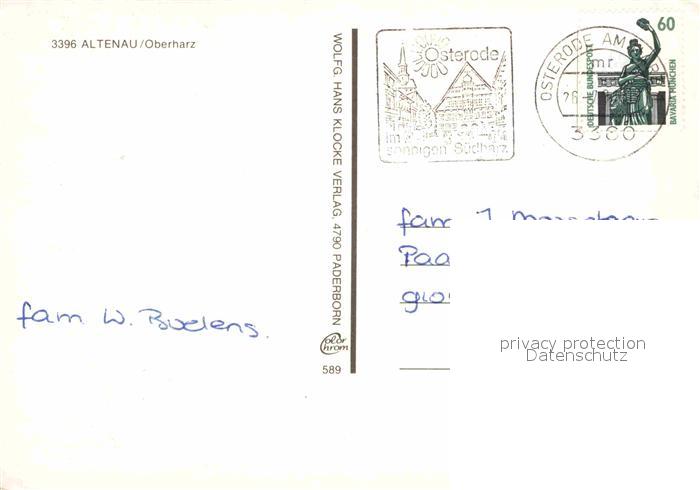 3396 ALTENAU/Oberharz
WOLFG. HANS KLOCKE VERLAG, 4790 PADERBORN
Color
chrom
589
Osterode
im
sonnigen Südharz
OSTERODE AM
mr
26
3360
60
DEUTSCHE BUNDESPOST
BAVARIA MÜNCHEN
fam
fam. W. Budens.
privacy protection
Datenschutz